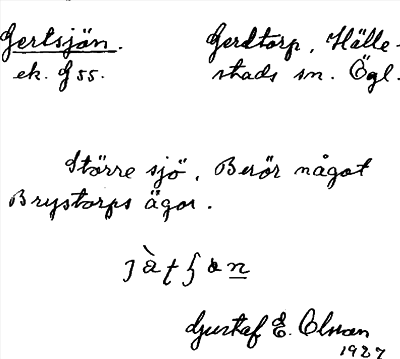 Gertsjön. Gerdtorp, Hälle-
ek. G 55. stads sn. Ögl.
Större sjö. Berör något
Brystorps ägor.
Gustaf E. Olsson
1927